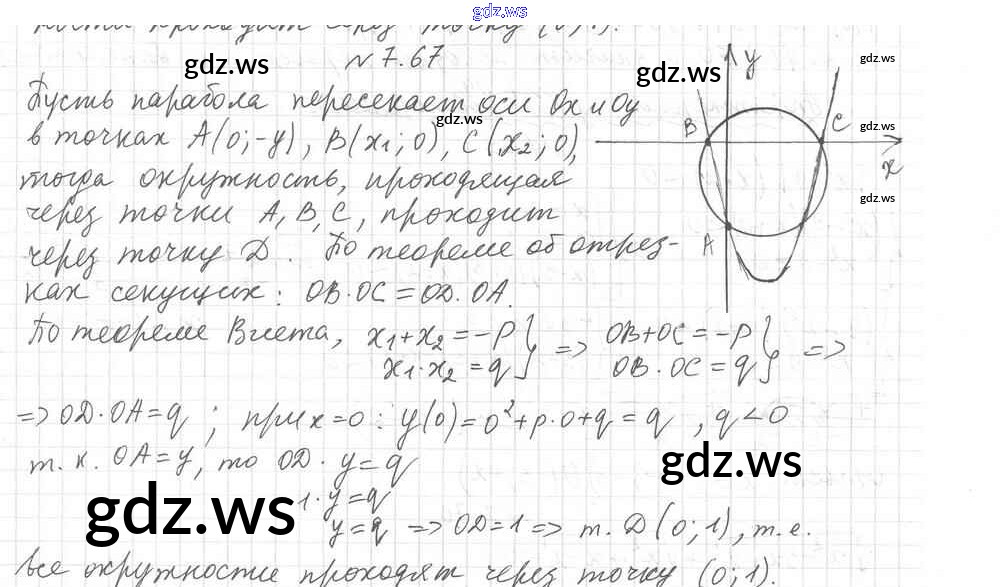 gdz.ws
проходит через точку (0;1).
gdz.ws
№ 7.67
gdz.ws
gdz.ws
Пусть парабола пересекает оси Ox и Oy
gdz.ws
в точках A(0;-y), B(x₁;0), C(x₂;0),
тогда окружность, проходящая
через точки A, B, C, проходит
через точку D. По теореме об отрез-
ках секущих: OB·OC = OD·OA.
y
B
C
gdz.ws
x
gdz.ws
A
По теореме Виета, x₁+x₂ = -p } => OB+OC = -p } =>
x₁·x₂ = q OB·OC = q
=> OD·OA = q ; при x=0: y(0) = 0²+p·0+q = q , q<0
т.к. OA = y, то OD·y = q
gdz.ws
gdz.ws
1·y = q
y = q => OD = 1 => т. D(0;1), т.е.
все окружности проходят через точку (0;1).